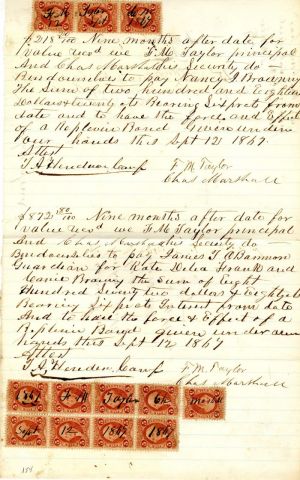 F M Taylor
$218 20/100 Nine months after date for
Value recd we F. M. Taylor principal
And Chas Marshall his Security do
Bind ourselves to pay Nancy J Browning
The Sum of two hundred and Eighteen
Dollars & twenty cts Bearing Six prct from
date and to have the force and Effect
of a Replevin Bond Given under
our hands this Sept 12 1867
Attest
F. M. Taylor
Chas Marshall
$872 80/100 Nine months after date for
value recd we F M Taylor principal
And Chas Marshall his Security do
Bind ourselves to pay James T
Guardian for Kate Delia Frank and
the sum of Eight
Hundred Seventy two dollars & Eighty cts
Bearing Six pr ct Interest from date
And to have the force & Effect of a
Replevin Bond given under our
hands this Sept 12 1867
Attest
F. M. Taylor
Chas Marshall
1867 F M Taylor Ch Marshall
Sept 12 1867 1867